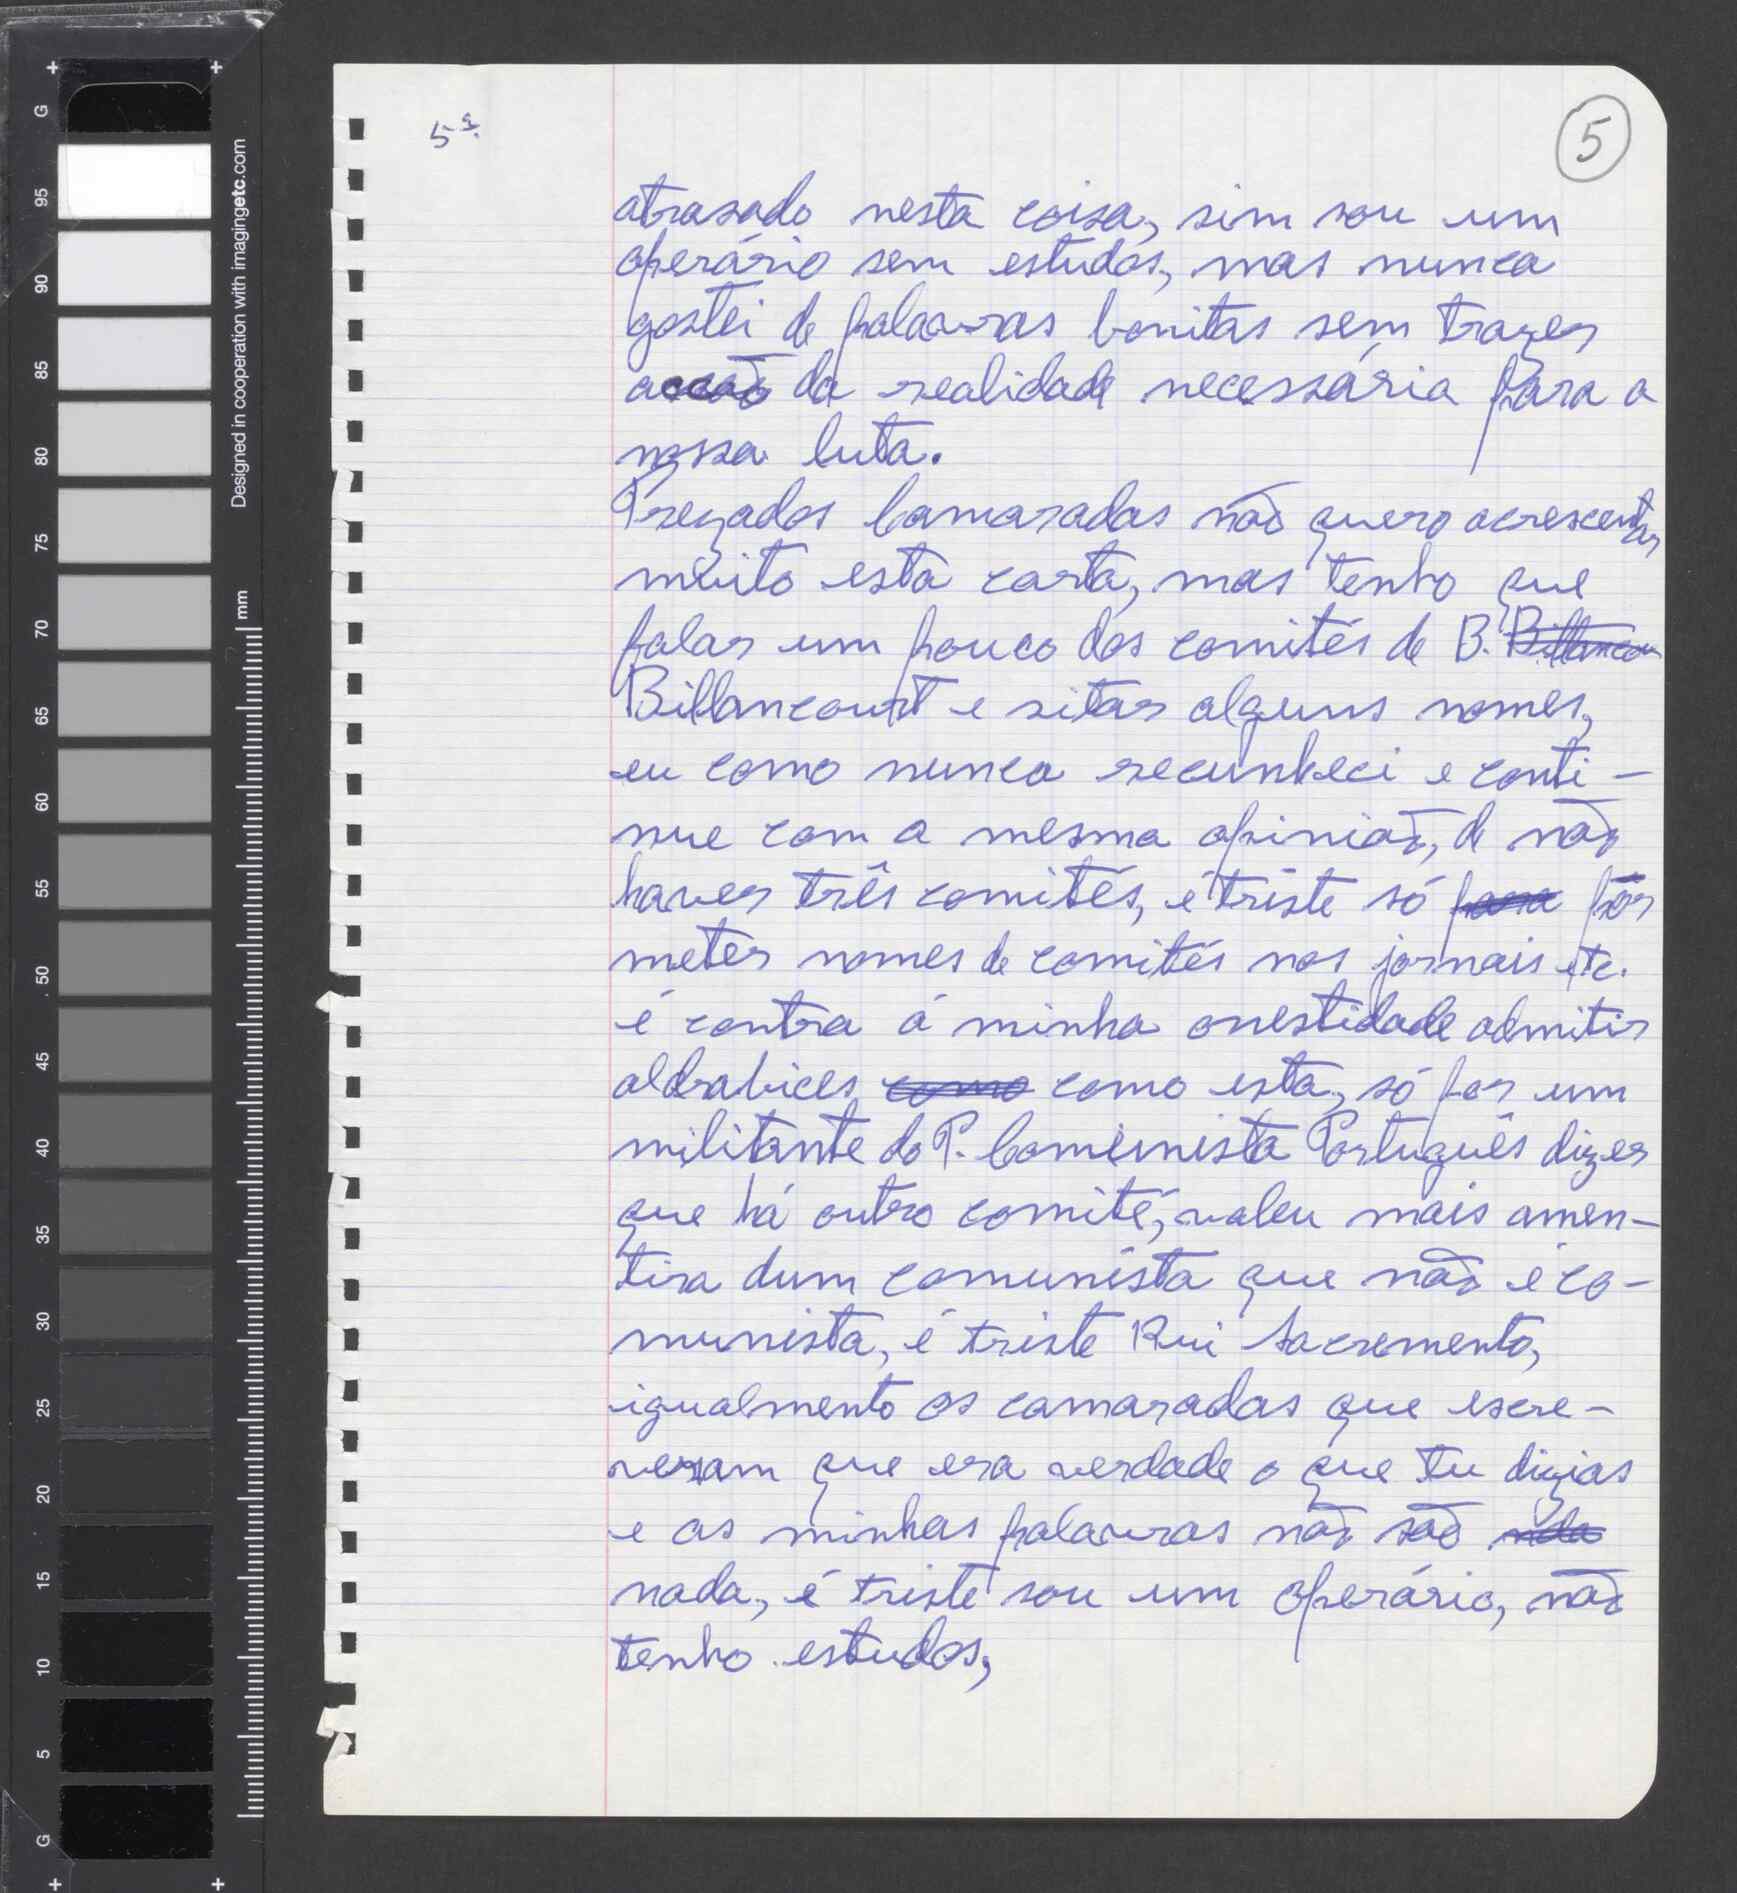 5ª
5
atrasado nesta coisa, sim sou um
operário sem estudos, mas nunca
gostei de palavras bonitas sem trazer
acção da realidade necessária para a
nossa luta.
Prezados Camaradas não quero acrescentar
muito esta carta, mas tenho que
falar um pouco dos comités de B. Billancou
Billancourt e sitar alguns nomes,
eu como nunca recunheci e conti-
nue com a mesma opinião, de não
haver três comités, é triste só para pôr
meter nomes de comités nos jornais etc.
é contra á minha onestidade admitir
aldrabices como como esta, só por um
militante do P. Comunista Português dizer
que há outro comité, valeu mais amen-
tira dum comunista que não é co-
munista, é triste Rui Sacremento,
igualmento os camaradas que escre-
veram que era verdade o que tu dizias
e as minhas palavras não são
nada, é triste sou um operário, não
tenho estudos,
Designed in cooperation with imagingetc.com
mm
G
95
90
85
80
75
70
65
60
55
50
45
40
35
30
25
20
15
10
5
G